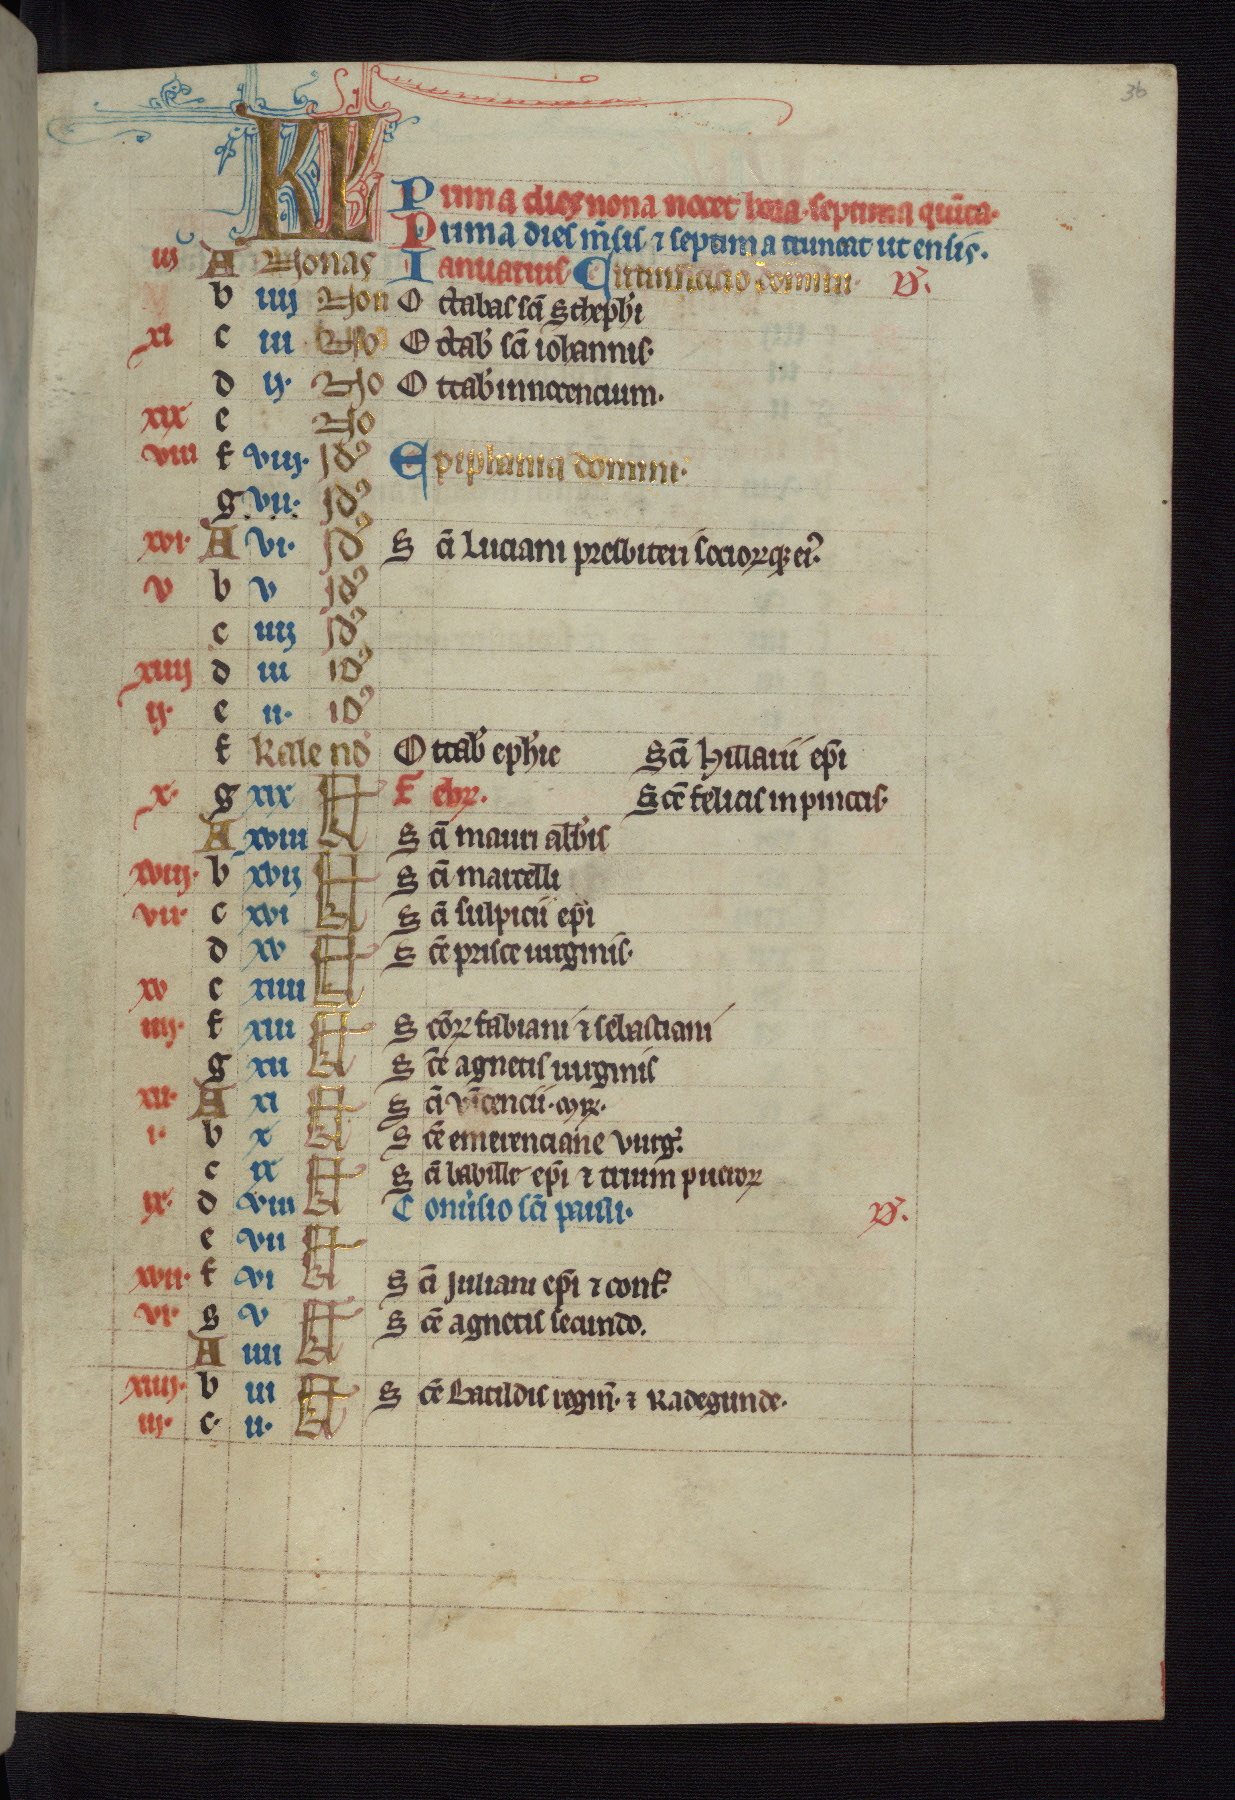 36
KL
Prima dies nona nocet hora septima quīta.
Prima dies mēsis ⁊ septima truncat ut ensis.
iij A Nonas Ianuarius Circumcisio domini
b iiij Non Octabas scī Stephī
xi c iii No Octab̄ scī iohannis.
d ij. No Octab̄ innocencium.
xix e No
viii f viij. Idꝰ Epiphania domini.
g vii. Idꝰ
xvi. A vi. Idꝰ Scī Luciani presbiteri sociorꝝ ei.
v b v Idꝰ
c iiij Idꝰ
xiiij d iii Idꝰ
ij. e ii. Idꝰ
f Kalend Octab̄ ephīe Scī Hillarii epī
x. g xix KL Febr. Scē felicis in pincis.
A xviii KL Scī mauri abb̄is
xviij. b xvij KL Scī marcelli
vii. c xvi KL Scī sulpicii epī
d xv KL Scē prisce uirginis.
xv e xiiii KL
iiij. f xiii KL Scōꝝ fabiani ⁊ sebastiani
g xii KL Scē agnetis uirginis
xii. A xi KL Scī vīcencii. mr̄.
i. b x KL Scē emerenciane virg.
c ix KL Scī babille epī ⁊ trium pueroꝝ
ix. d viii KL Conūsio scī pauli.
e vii KL
xvii. f vi KL Scī Juliani epī ⁊ conf.
vi. g v KL Scē agnetis secundo.
A iiii KL
xiiij. b iii KL Scē Batildis regin̄. ⁊ Radegunde.
iij. c. ii. KL